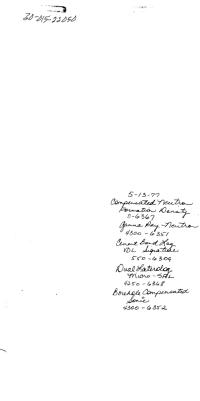 30-015-22050
5-13-77
Compensated Neutron
Formation Density
0-6367
Gamma Ray-Neutron
4300-6351
Cement Bond Log
VDL Signature
550-6304
Dual Laterolog
Micro-SFL
4250-6368
Borehole Compensated
Sonic
4300-6352